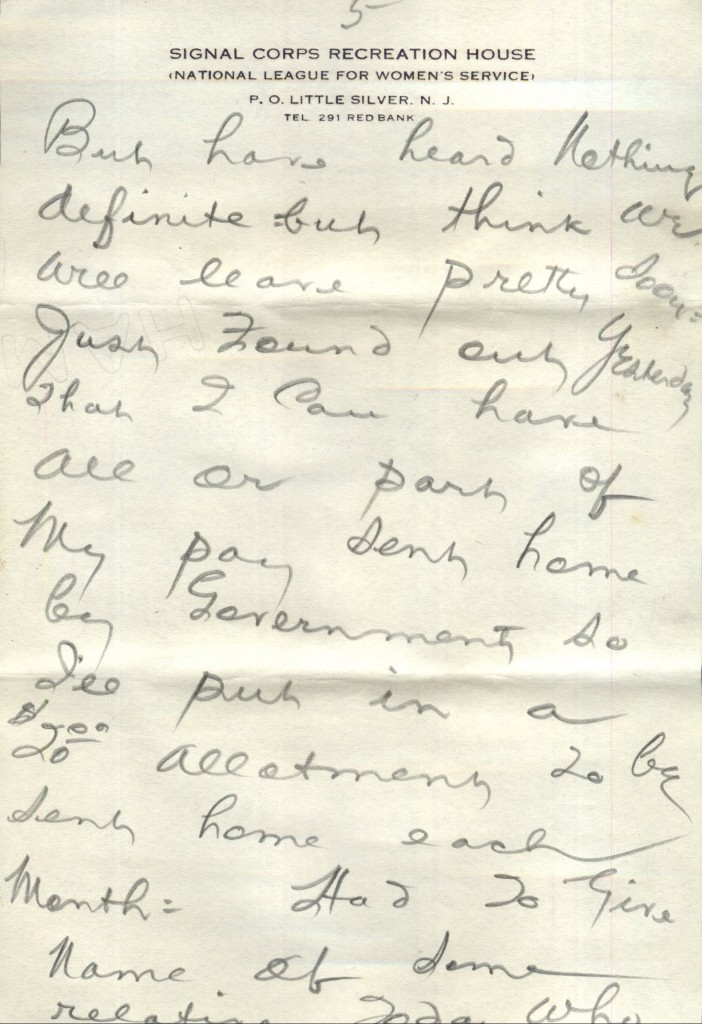 5
SIGNAL CORPS RECREATION HOUSE
(NATIONAL LEAGUE FOR WOMEN'S SERVICE)
P. O. LITTLE SILVER. N. J.
TEL. 291 RED BANK
But have heard Nothing
definite - but think we
will leave pretty soon =
Just Found out Yesterday
that I Can have
all or part of
My pay sent home
by Government so
I'll put in a
$20.00 allotment to be
sent home each
Month = Had to Give
Name of some
relative Today who